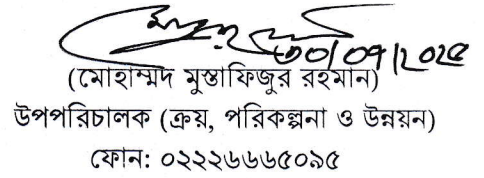 ৩০/০৭/২০২৫
(মোহাম্মদ মুস্তাফিজুর রহমান)
উপপরিচালক (ক্রয়, পরিকল্পনা ও উন্নয়ন)
ফোন: ০২২২৬৬৬৫০৯৫